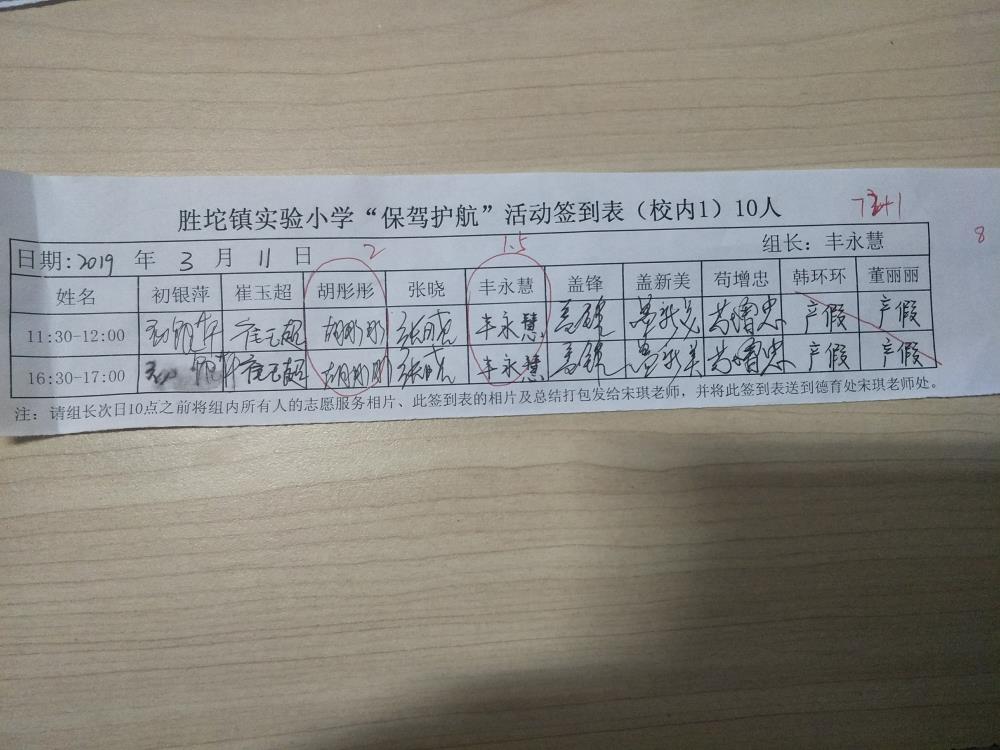 胜坨镇实验小学“保驾护航”活动签到表（校内1）10人
8
日期:2019 年 3 月 11 日 2 1.5 组长：丰永慧
姓名 初银萍 崔玉超 胡彤彤 张晓 丰永慧 盖锋 盖新美 苟增忠 韩环环 董丽丽
11:30-12:00 初银萍 崔玉超 胡彤彤 张晓 丰永慧 盖锋 盖新美 苟增忠 产假 产假
16:30-17:00 崔玉超 胡彤彤 张晓 丰永慧 盖锋 盖新美 苟增忠 产假 产假
注：请组长次日10点之前将组内所有人的志愿服务相片、此签到表的相片及总结打包发给宋琪老师，并将此签到表送到德育处宋琪老师处。